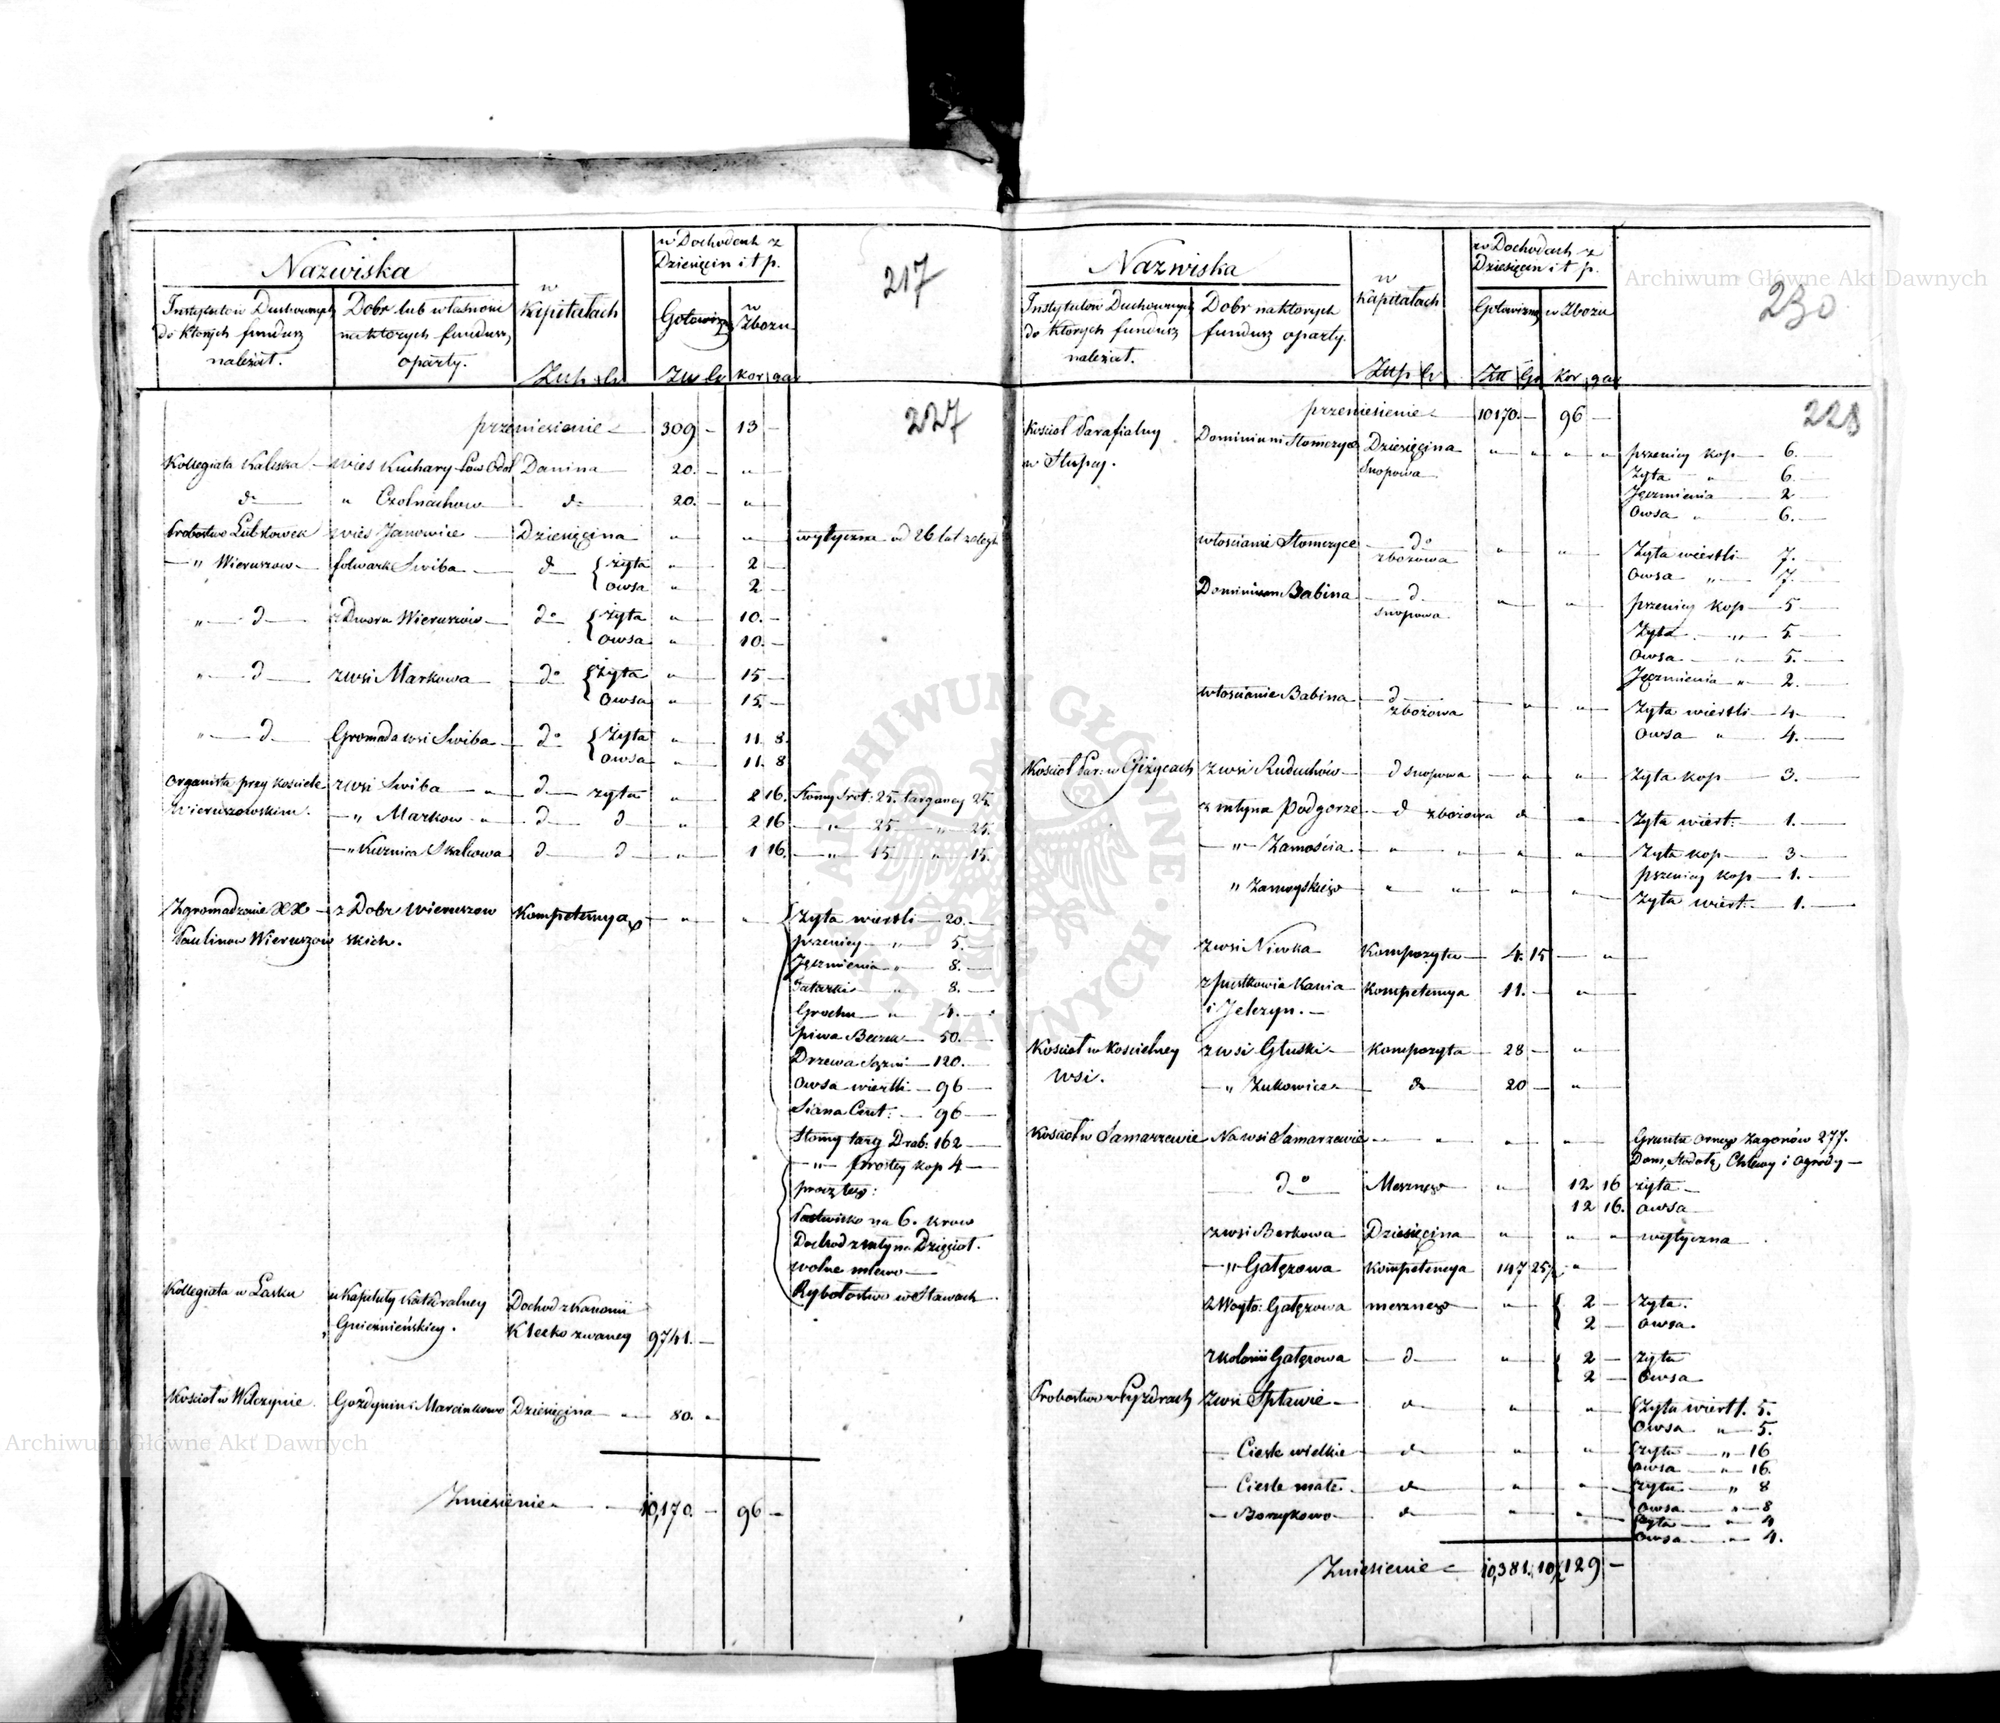 Nazwiska
w Dochodach z
Dziesięcin i t p.
217
Instytutów Duchownych
do których fundusz
należał.
Dobr lub własnosci
na których fundusz
oparty.
w
Kapitałach
Gotowizną
w
Zbożu
Złp gr
Zł gr
kor gar
przeniesienie 309 — 13 —
227
Kollegiata Kaliska — wies Kuchary Danina 20. — „
do „ Czołnachow do 20. — „
Probostwo wies Janowice Dziesięcina „ „ wytyczna od 26 lat zaległa
— „ Wieruszow folwark Swiba d { żyta „ 2 —
owsa „ 2 —
„ d z Dworu Wieruszów do { żyta „ 10. —
owsa „ 10. —
„ d z wsi Markowa do { Żyta „ 15 —
owsa „ 15. —
„ d Gromada wsi Swiba do { Żyta „ 11 8.
owsa „ 11. 8
Organista przy kościele z wsi Swiba „ d żyta „ 2 16. Słomy prot: 25. targaney 25.
Wieruszowskim. — „ Markow „ d d „ 2 16 — „ 25 „ 25.
— „ Kuznica Skakowa d d „ 1 16. — „ 15 „ 15.
Zgromadzenie XX — z Dobr Wieruszow Kompetencya „ „ Żyta wiertli — 20. —
Paulinow Wieruszow skich. pszenicy „ 5. —
Jęczmienia „ 8. —
Tatarki „ 8. —
Grochu „ 4. —
piwa Beczek — 50. —
Drzewa Sążni — 120. —
Owsa wiertli — 96 —
Siana Cent: — 96 —
Słomy targ Drab: 162 —
— „ prostey kop 4 —
procz tego:
Pastwisko na 6. krow
Dochod z młyna Dzięcioł.
wolne mlewo —
Rybołostwo w Stawach.
Kollegiata w Lasku u Kapituły Katedralney Dochod z Kanonii
Gnieznieńskiey. Klecko zwaney 9741. —
Kościoł w Wilczynie. Gozdynin i Marcinkowo Dziesięcina „ 80. „
Zniesienie — 10,170. — 96 —
Nazwiska
w Dochodach z
Dziesięcin i t p.
230
Instytutow Duchownych
do ktorych fundusz
należał.
Dobr na ktorych
fundusz oparty.
w
kapitałach
Gotowizną w Zbożu
Złp gr
Zł gr
kor gar
przeniesienie 10170. — 96 —
228
Kościoł Parafialny Dominium Słomczyce Dziesięcina „ „ „ „ pszenicy kop — 6. —
w Słupcy. Snopowa Żyta „ 6. —
Jęczmienia 2 —
Owsa „ 6. —
włościanie Słomczyce do „ „ Żyta wiertli — 7. —
zbożowa Owsa „ 7. —
Dominium Babina d „ „ pszenicy kop — 5 —
snopowa Żyta „ 5. —
Owsa „ 5. —
Jęczmienia „ 2. —
włościanie Babina d „ „ Żyta wiertli — 4 —
zbożowa Owsa „ 4. —
Kościoł Par: w Giżycach z wsi Ruduchów d snopowa „ „ Żyta kop — 3. —
z młyna Podgorze d zbożowa „ Żyta wiert: — 1. —
— „ Zamościa „ „ „ „ Żyta kop — 3 —
pszenicy kop — 1. —
„ Zamoyskiego „ „ „ „ Żyta wiert. — 1. —
z wsi Niwka Kompozyta 4. 15 — „
z pustkowia Kania Kompetencya 11. — „
i Jelczyn. —
Kościoł w Koscielney z wsi Głuski Kompozyta 28 — „
wsi. — „ Żukowice do 20 — „
Kościoł w Samarzewie Na wsi Samarzewie „ „ „ Gruntu ornego Zagonów 277.
Dom, Stodoła, Chlewy i Ogrody —
do Mesznego „ 12 16 żyta —
12 16. owsa —
z wsi Berkowa Dziesięcina „ „ „ wytyczna
— „ Gałęzowa Kompetencya 147 25 „
z Woyto: Gałęzowa mesznego „ { 2 — Żyta.
2 — Owsa.
z kolonii Gałęzowa d „ { 2 — Żyta
2 — Owsa
Probostwo w Pyzdrach z wsi Spławie d „ „ Żyta wiertl. 5.
Owsa „ 5.
— Ciesle wielkie d „ „ Żyta „ 16
Owsa „ 16.
— Ciesle małe d „ „ żyta „ 8
Owsa „ 8
— Borzykowo d „ „ żyta „ 4
Owsa „ 4.
Zniesienie 10,381. 10 129 —
ARCHIWUM GŁÓWNE AKT DAWNYCH
Archiwum Główne Akt Dawnych
Archiwum Główne Akt Dawnych